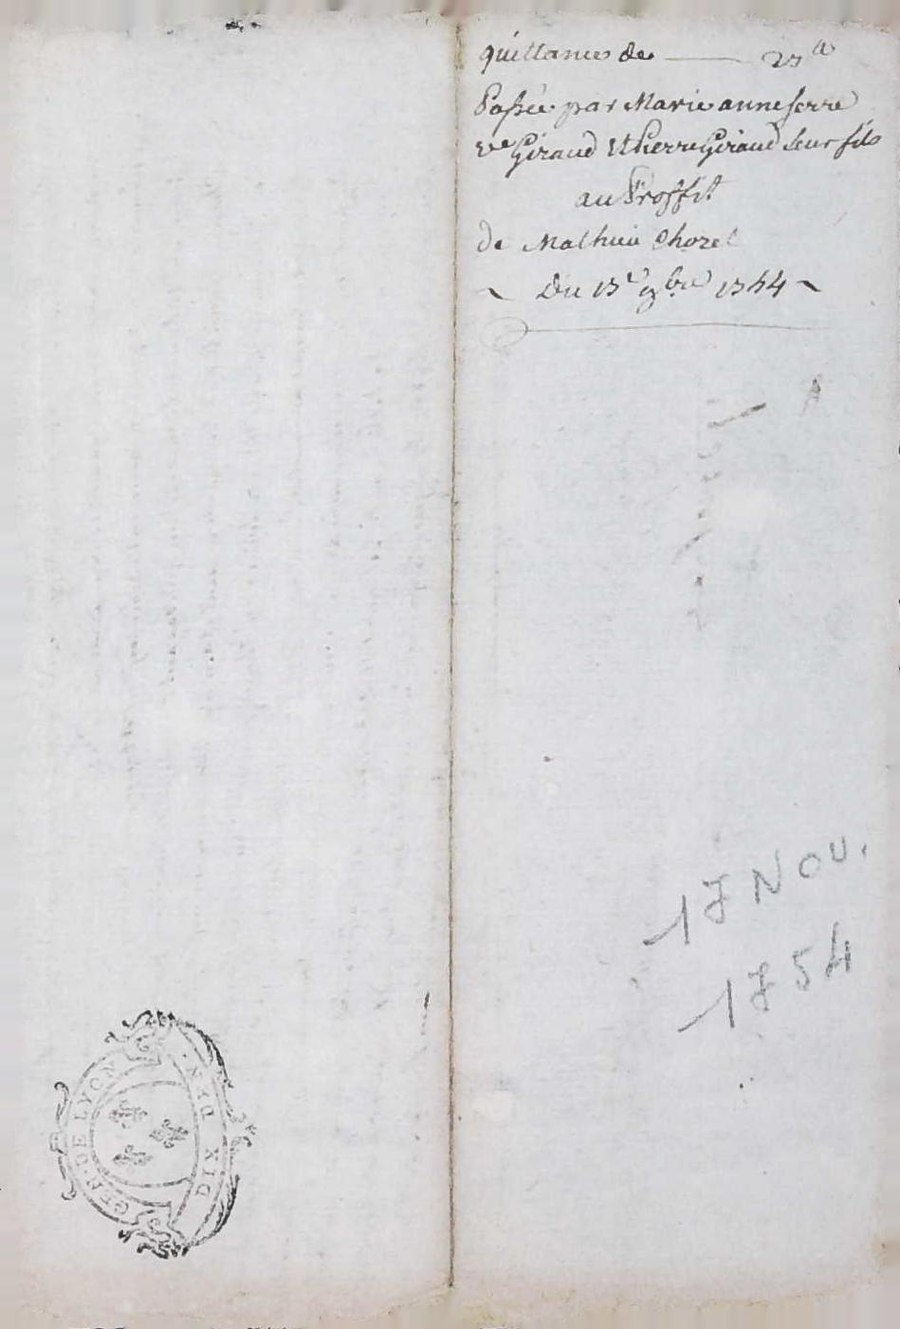 quittance de ——— 27ᵗᵗ
Passée par Marie anne serre
vᵉ Giraud Et Pierre Giraud Leur fils
au Proffit
de Mathieu Chozel
~ Du 17ᵉ 9bre 1754 ~
17 NOU.
1754
GEN. DE LYON
DIX DEN.